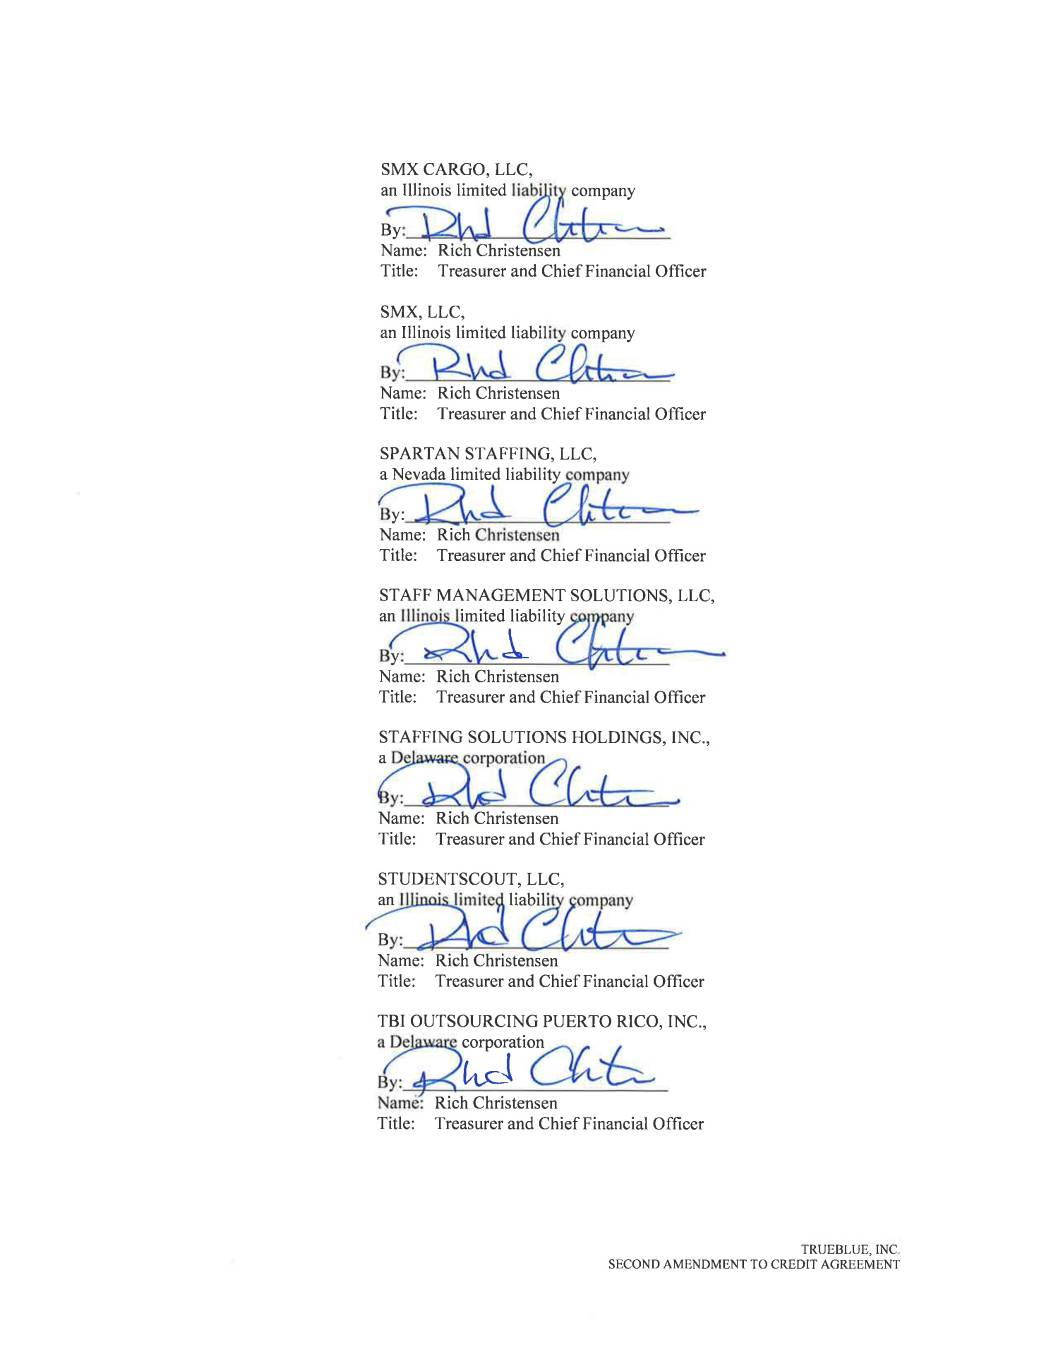 SMX CARGO, LLC,
an Illinois limited liability company
By:
Name: Rich Christensen
Title: Treasurer and Chief Financial Officer
SMX, LLC,
an Illinois limited liability company
By:
Name: Rich Christensen
Title: Treasurer and Chief Financial Officer
SPARTAN STAFFING, LLC,
a Nevada limited liability company
By:
Name: Rich Christensen
Title: Treasurer and Chief Financial Officer
STAFF MANAGEMENT SOLUTIONS, LLC,
an Illinois limited liability company
By:
Name: Rich Christensen
Title: Treasurer and Chief Financial Officer
STAFFING SOLUTIONS HOLDINGS, INC.,
a Delaware corporation
By:
Name: Rich Christensen
Title: Treasurer and Chief Financial Officer
STUDENTSCOUT, LLC,
an Illinois limited liability company
By:
Name: Rich Christensen
Title: Treasurer and Chief Financial Officer
TBI OUTSOURCING PUERTO RICO, INC.,
a Delaware corporation
By:
Name: Rich Christensen
Title: Treasurer and Chief Financial Officer
TRUEBLUE, INC.
SECOND AMENDMENT TO CREDIT AGREEMENT